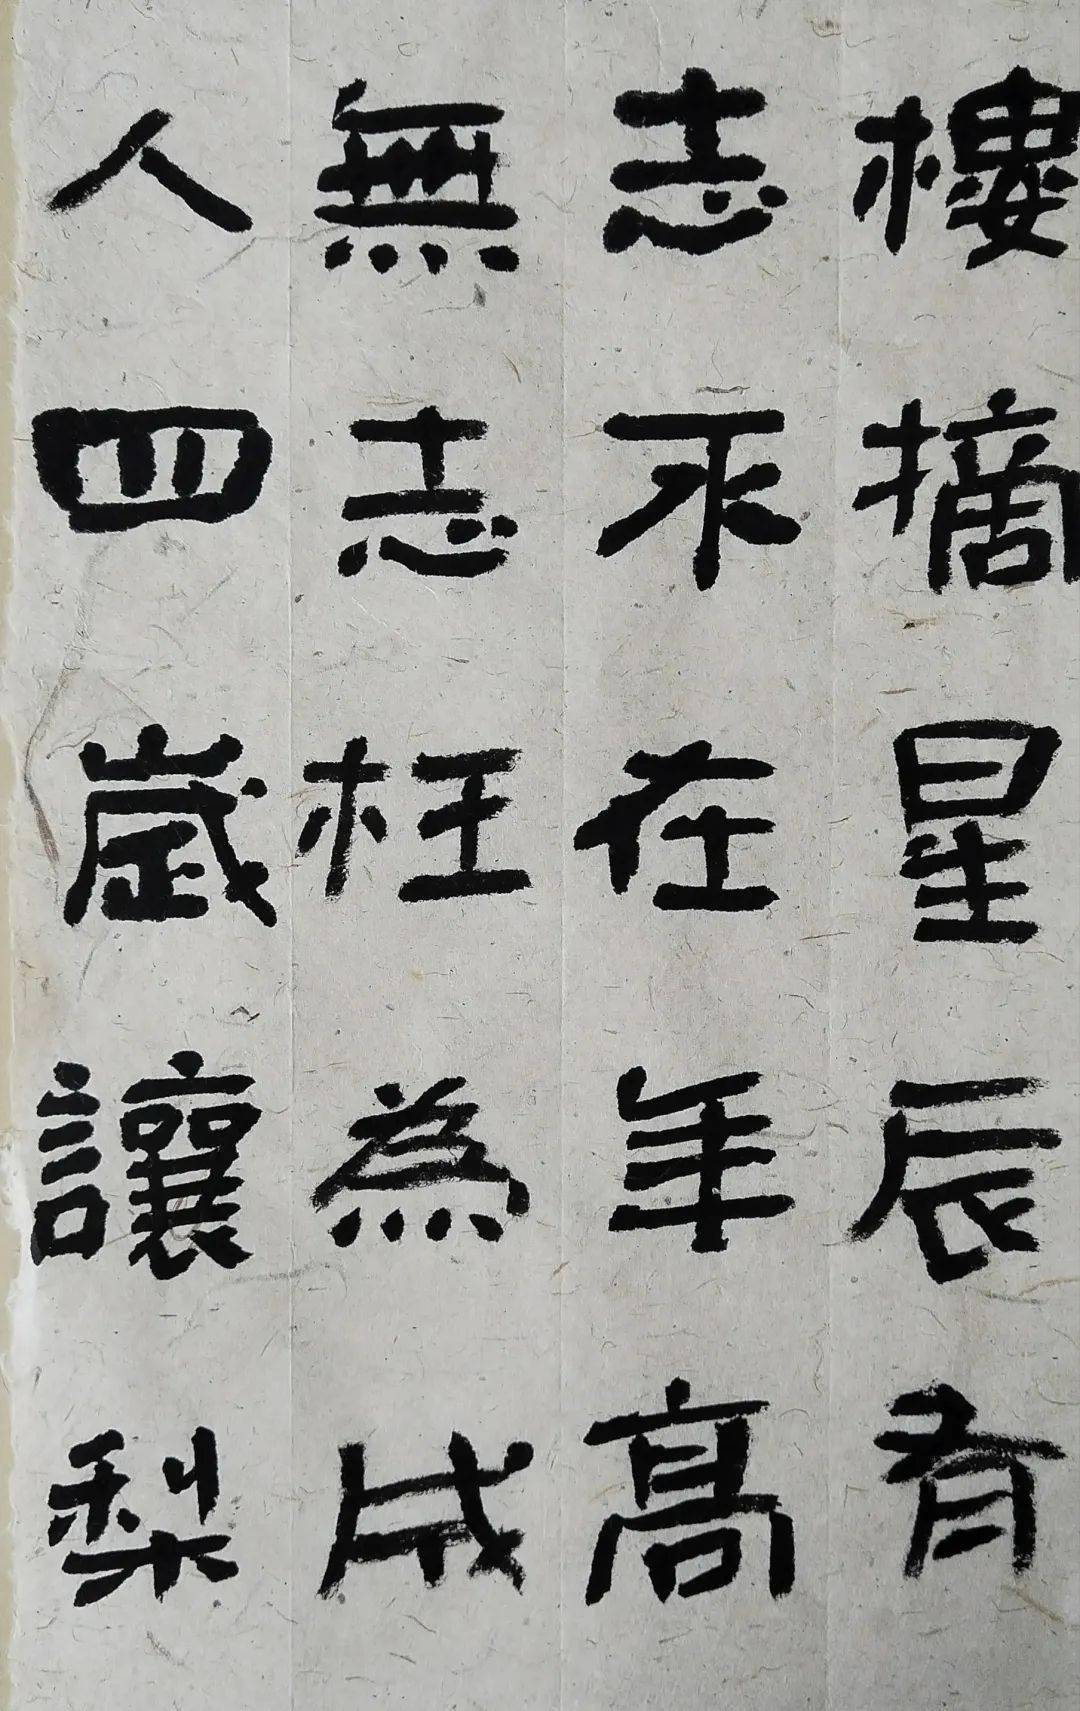 樓摘星辰有
志不在年高
無志枉為成
人四歲讓梨